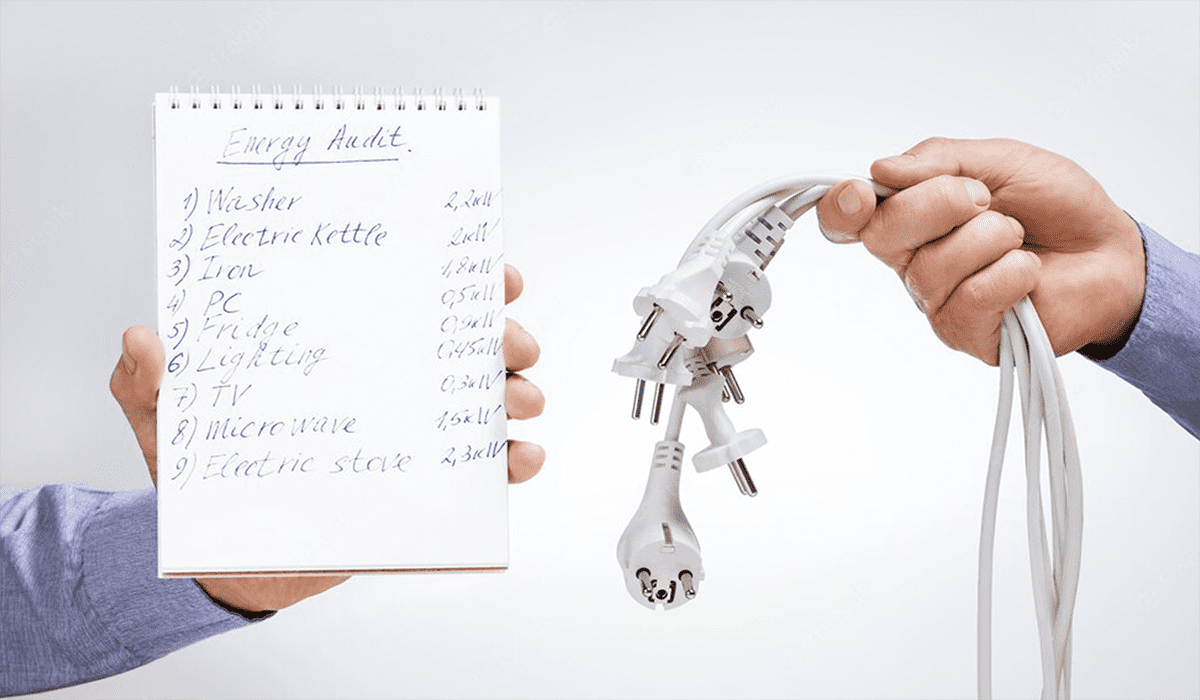 Energy Audit.
1) Washer 2,2кW
2) Electric Kettle 2кW
3) Iron 1,8кW
4) PC 0,5кW
5) Fridge 0,9кW
6) Lighting 0,45кW
7) TV 0,3кW
8) Microwave 1,5кW
9) Electric stove 2,3кW